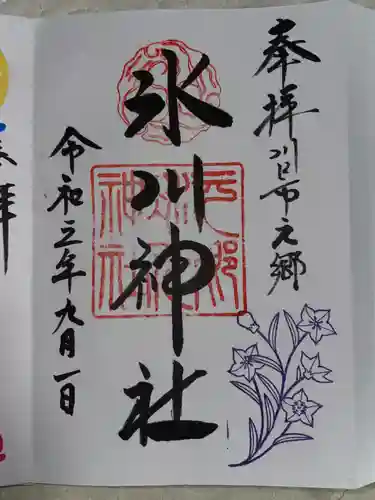 奉拝 川口市元郷
氷川神社
令和三年九月一日
元郷
氷川
神社
拝